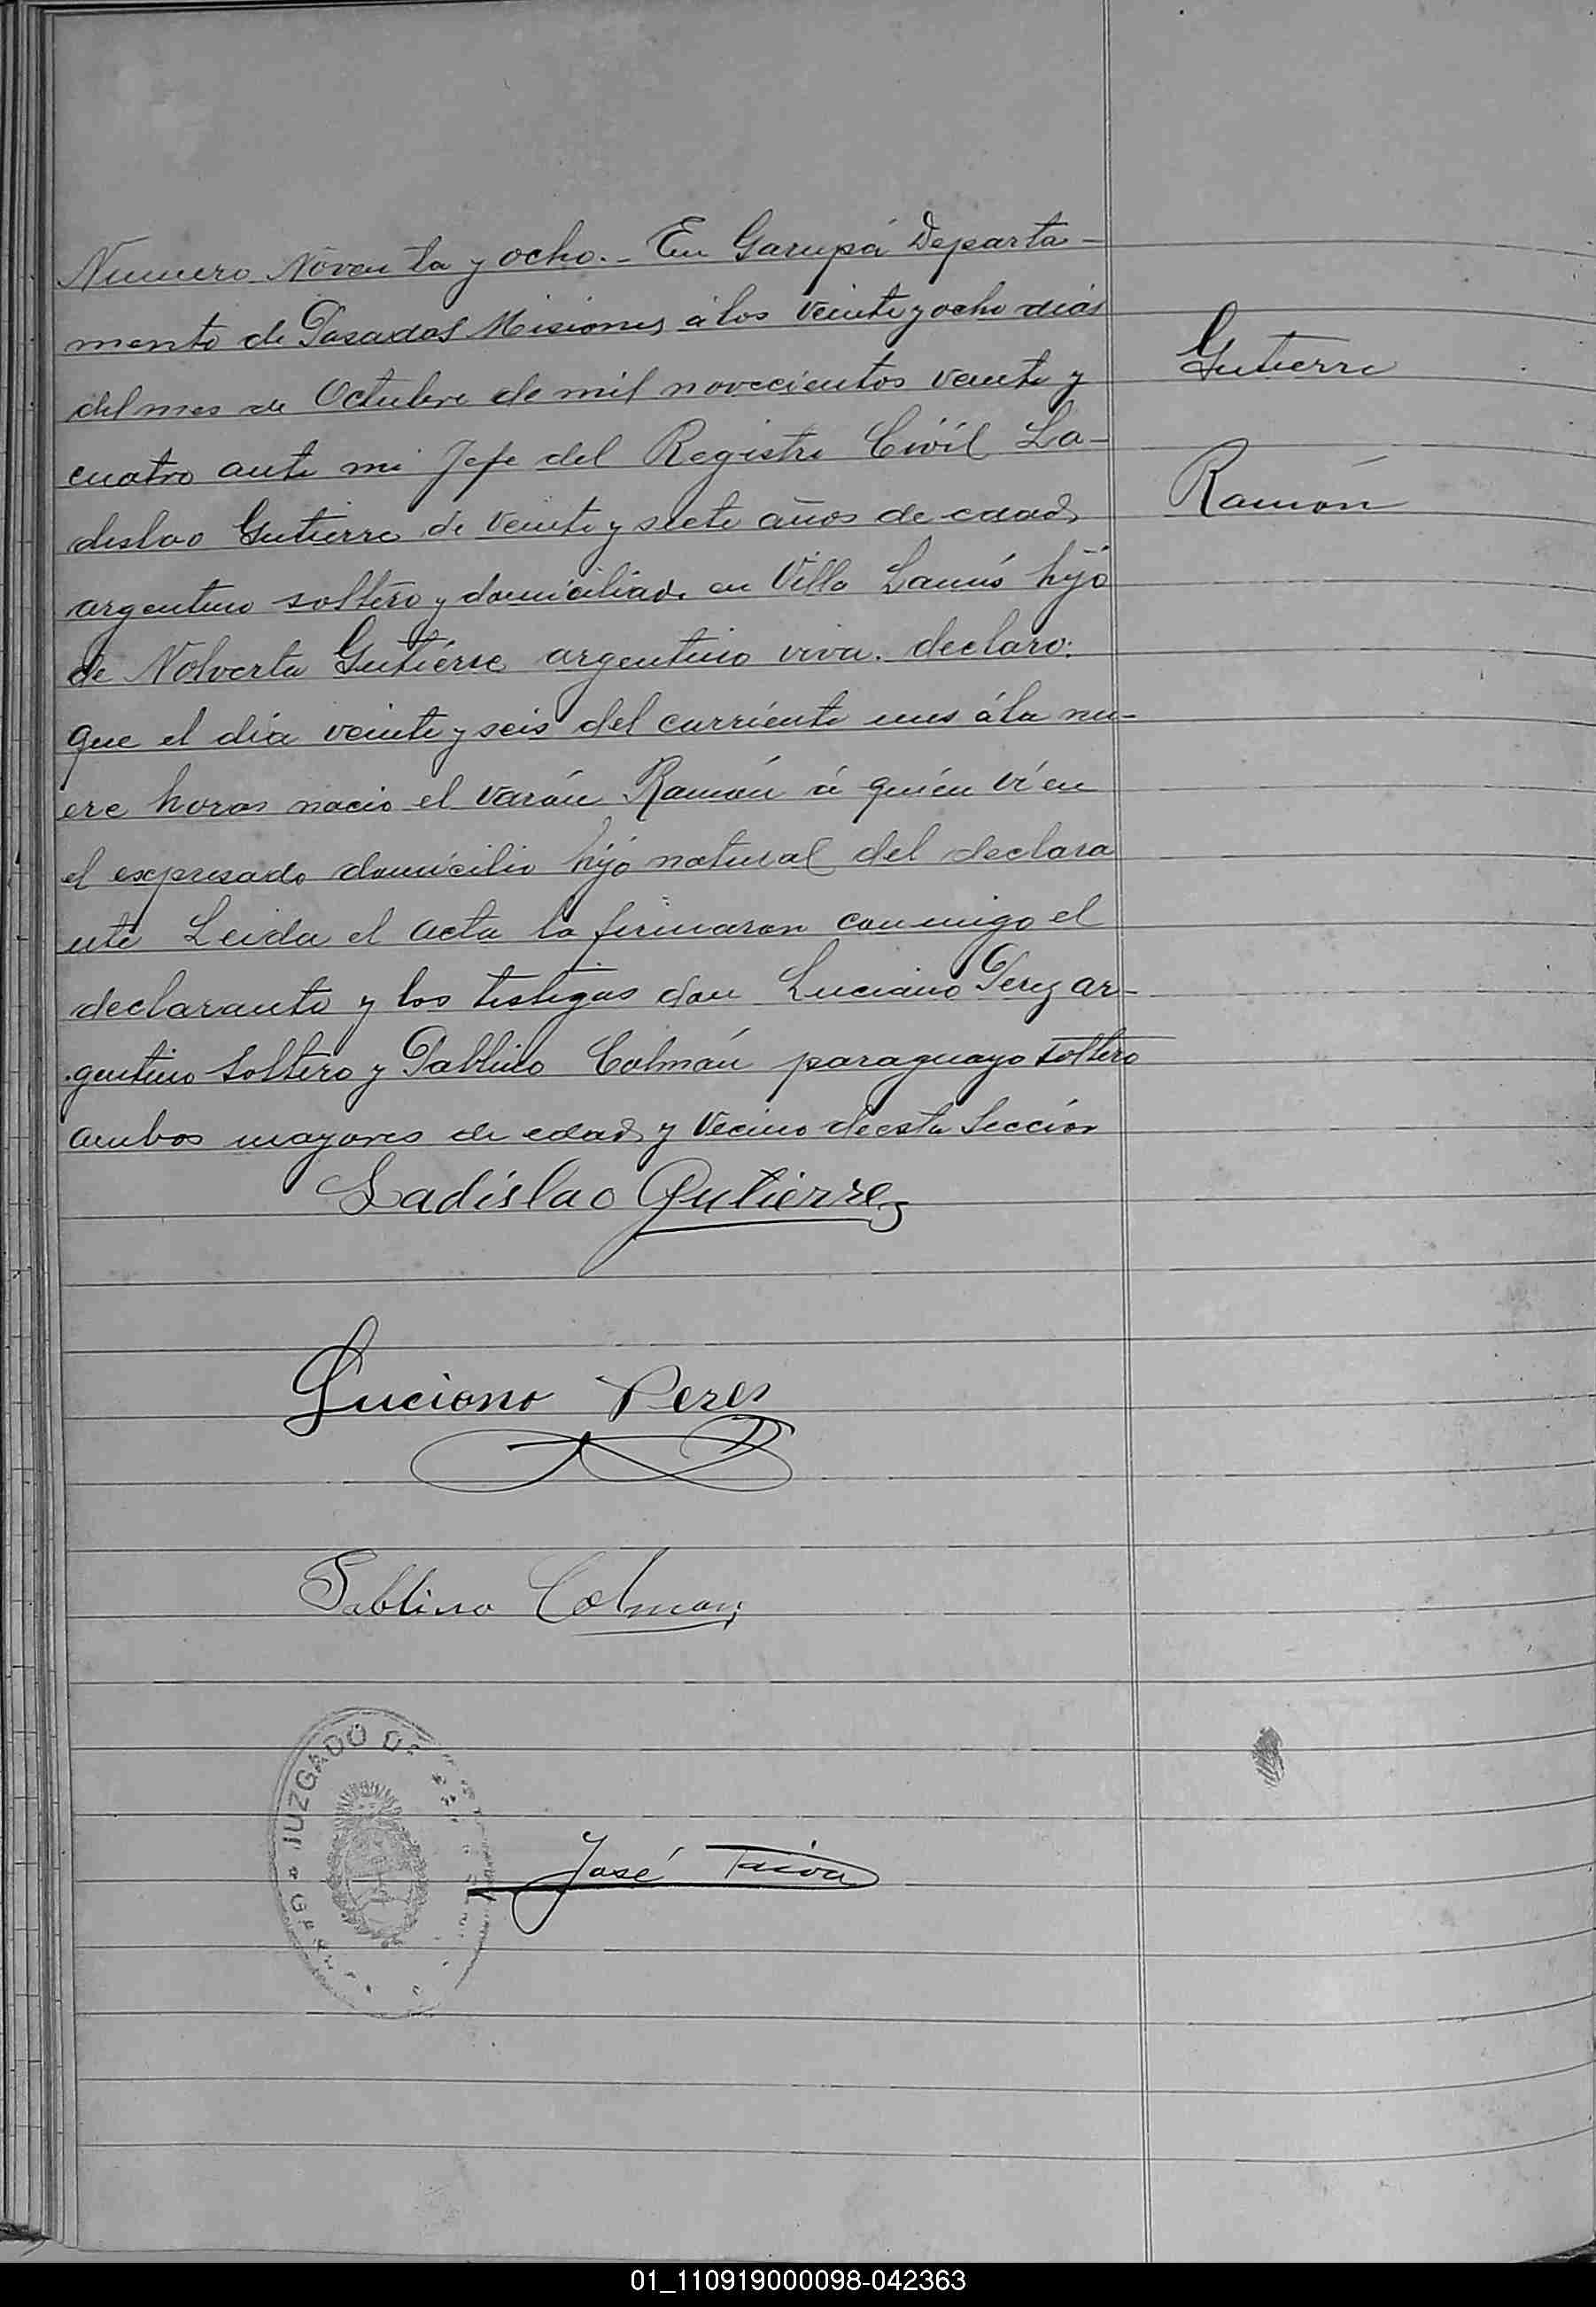 Numero Noventa y ocho.- En Garupá Departa-
mento de Posadas Misiones á los veinte y ocho dias
del mes de Octubre de mil novecientos veinte y
Gutierre
cuatro ante mi Jefe del Registro Civil La-
Ramón
dislao Gutierre de veinte y siete años de edad
argentino soltero y domiciliado en Villa Lanús hijo
de Nolverta Gutiérre argentino viva. declaro:
que el día veinte y seis del corriente mes á la nu-
eve horas nacio el varón Ramón á quién ví en
el expresado domicilio hijo natural del declara
nte Leida el acta la firmaron conmigo el
declarante y los testigos don Luciano Perez ar-
gentino soltero y Pablino Colmán paraguayo soltero
ambos mayores de edad y vecino de esta Sección
Ladislao Gutierrez
Luciano Peres
Pablino Colman
JUZGADO DE
José
01_110919000098-042363